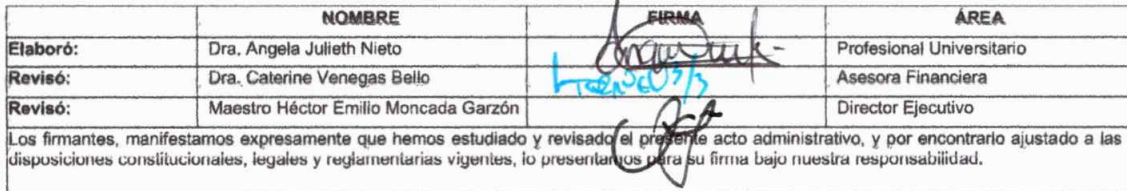 NOMBRE FIRMA ÁREA
Elaboró: Dra. Angela Julieth Nieto Profesional Universitario
Revisó: Dra. Caterine Venegas Bello Asesora Financiera
Revisó: Maestro Héctor Emilio Moncada Garzón Director Ejecutivo
Los firmantes, manifestamos expresamente que hemos estudiado y revisado el presente acto administrativo, y por encontrarlo ajustado a las
disposiciones constitucionales, legales y reglamentarias vigentes, lo presentamos para su firma bajo nuestra responsabilidad.